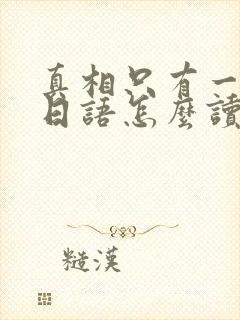 真相只有一
日語怎麼讀
糙漢